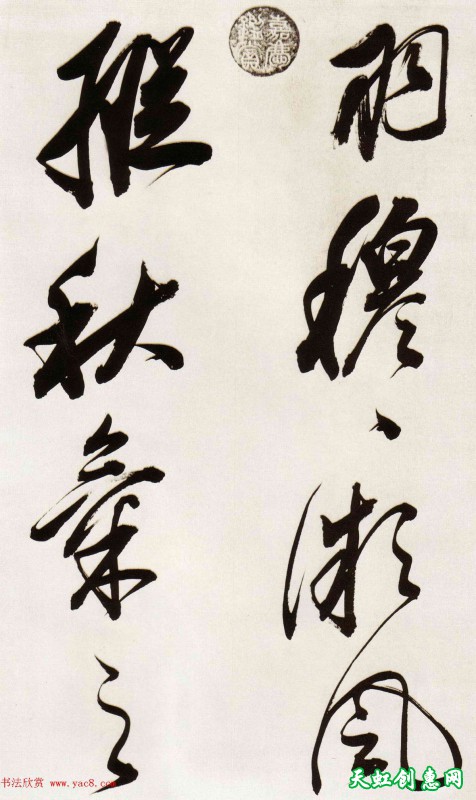 羽穆〻微風
縱秋氣之
嘉慶鑑賞
书法欣赏 www.yac8.com
天虹创惠网